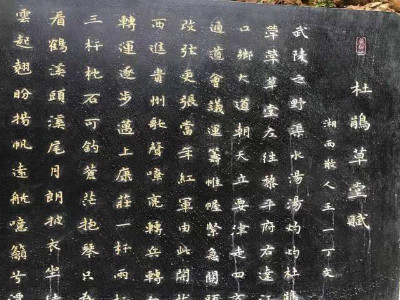 杜鵑草堂賦
湘西散人三一丁文
武陵之野渠水湯湯灼灼杜
萍草草堂左往黎平府右達
口鄉大道朝天立要津走四
通道會議運籌帷幄緊急關頭
改弦更張當年紅軍由此開
西進貴州歌聲嘹亮轉兵轉
轉運逐步邁上康莊一杆兩
三杆枕石可釣蒼茫抱琴只
看鶴溪頭溪尾月朗披衣坐
雲起翹盼揚帆遠航噫籲兮